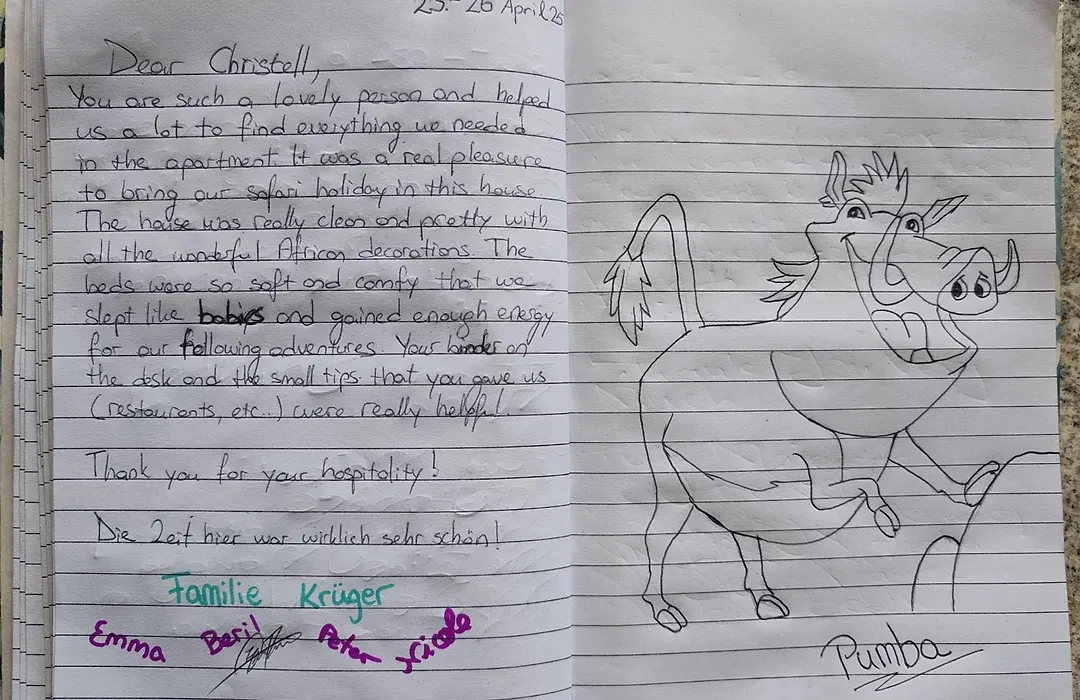 23.-26 April 25
Dear Christell,
You are such a lovely person and helped
us a lot to find everything we needed
in the apartment. It was a real pleasure
to bring our safari holiday in this house.
The house was really clean and pretty with
all the wonderful African decorations. The
beds were so soft and comfy that we
slept like babies and gained enough energy
for our following adventures. Your binder on
the desk and the small tips that you gave us
(restaurants, etc..) were really helpful.
Thank you for your hospitality!
Die Zeit hier war wirklich sehr schön!
Familie Krüger
Emma Beril Peter Nicole
Pumba